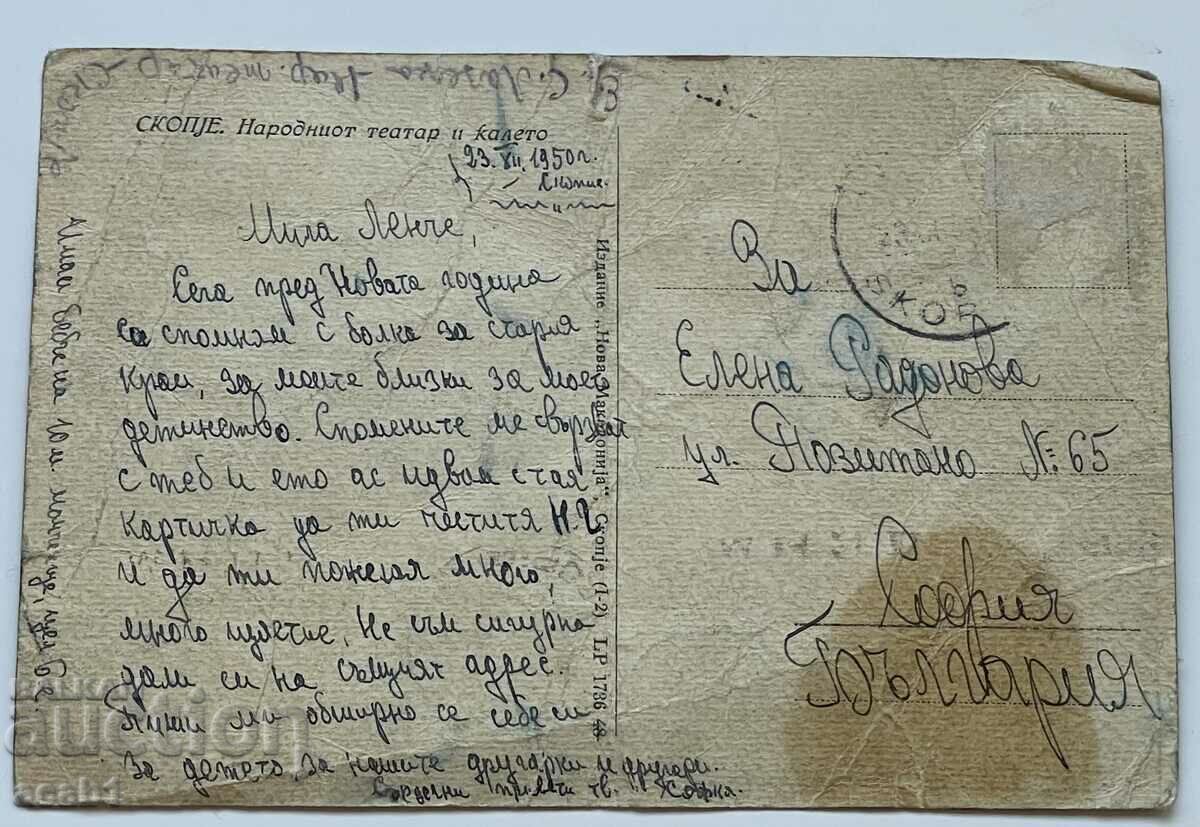 С. Лозенка Нар. театар
СКОПЈЕ. Народниот театар и ќалето
23.XII.1950 г.
Скопие.
Мила Ленче,
Сега пред Новата година
са спомням с болка за стария
край, за моите близки за моето
детинство. Спомените ме свързват
с теб и ето ас идвам с тая
картичка да ти честитя Н.Г.
и да ти пожелая много,
много щастие. Не съм сигурна
дали си на същият адрес.
Пиши ми обширно се себе си
за детето, за нашите другарки и другари.
Сърдечни привети тв. Софка.
Имаа бебе на 10 м. момченце,
Издание „Нова Македонија“, Скопје (1-2) LP 1736
SKOP
За
Елена Радонова
ул. Позитано №: 65
София
България
auction
acab1